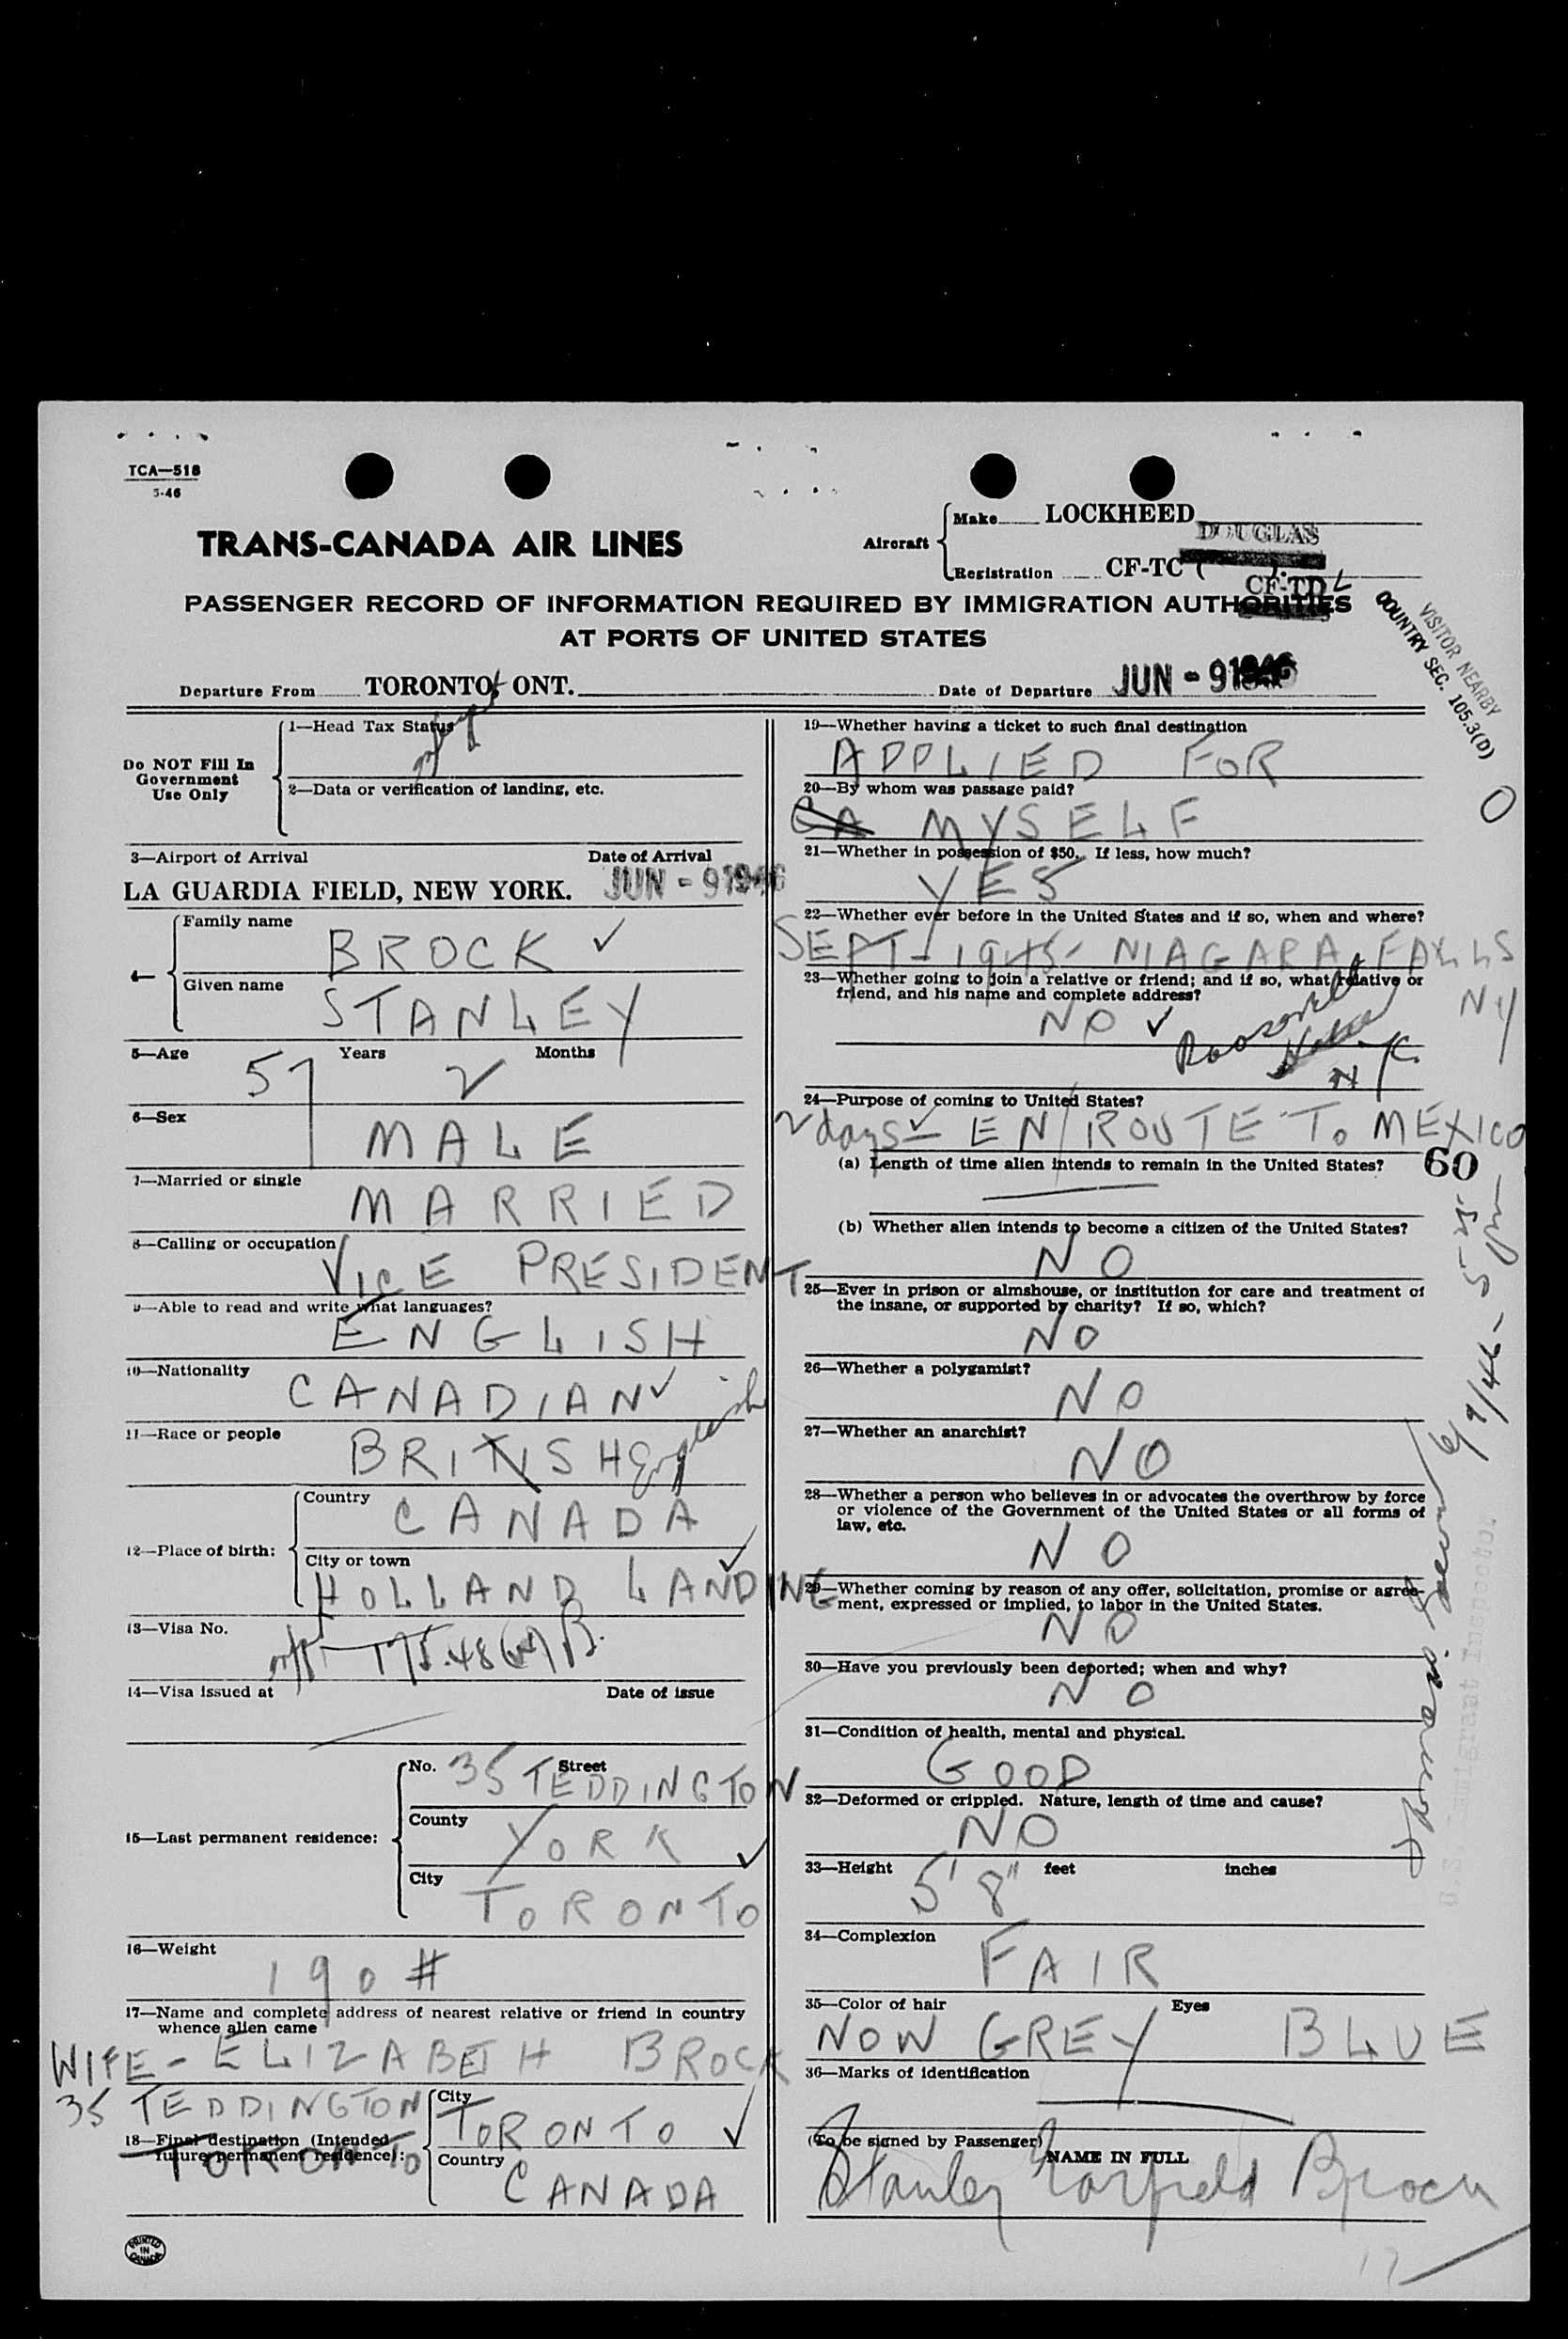 TCA—518
5-46
TRANS-CANADA AIR LINES
Aircraft
Make LOCKHEED
DOUGLAS
Registration CF-TC ( ).
CF-TD L
PASSENGER RECORD OF INFORMATION REQUIRED BY IMMIGRATION AUTHORITIES
AT PORTS OF UNITED STATES
VISITOR NEARBY
COUNTRY SEC. 105.3(D)
Departure From TORONTO, ONT. Date of Departure JUN - 9 1946
Do NOT Fill In
Government
Use Only
1—Head Tax Status
2—Data or verification of landing, etc.
3—Airport of Arrival Date of Arrival
LA GUARDIA FIELD, NEW YORK. JUN - 9 1946
4—
Family name
BROCK ✓
Given name
STANLEY
5—Age Years Months
57 2
6—Sex
MALE
7—Married or single
MARRIED
8—Calling or occupation
VICE PRESIDENT
9—Able to read and write what languages?
ENGLISH
10—Nationality
CANADIAN ✓
11—Race or people
BRITISH English
12—Place of birth:
Country
CANADA
City or town
HOLLAND LANDING
13—Visa No.
175.48
14—Visa issued at Date of issue
15—Last permanent residence:
No. Street
35 TEDDINGTON
County
YORK
City
TORONTO
16—Weight
190 #
17—Name and complete address of nearest relative or friend in country
whence alien came
WIFE - ELIZABETH BROCK
35 TEDDINGTON
TORONTO
18—Final destination (Intended
future permanent residence):
City
TORONTO ✓
Country
CANADA
PRINTED
IN
CANADA
19—Whether having a ticket to such final destination
APPLIED FOR
20—By whom was passage paid?
CA MYSELF
21—Whether in possession of $50. If less, how much?
YES
22—Whether ever before in the United States and if so, when and where?
SEPT - 1945 - NIAGARA FALLS
NY
23—Whether going to join a relative or friend; and if so, what relative or
friend, and his name and complete address?
NO ✓
Roosevelt
Hotel
NYC.
24—Purpose of coming to United States?
2 days — EN ROUTE TO MEXICO
(a) Length of time alien intends to remain in the United States?
60
(b) Whether alien intends to become a citizen of the United States?
NO
25—Ever in prison or almshouse, or institution for care and treatment of
the insane, or supported by charity? If so, which?
NO
26—Whether a polygamist?
NO
27—Whether an anarchist?
NO
28—Whether a person who believes in or advocates the overthrow by force
or violence of the Government of the United States or all forms of
law, etc.
NO
29—Whether coming by reason of any offer, solicitation, promise or agree-
ment, expressed or implied, to labor in the United States.
NO
30—Have you previously been deported; when and why?
NO
31—Condition of health, mental and physical.
GOOD
32—Deformed or crippled. Nature, length of time and cause?
NO
33—Height feet inches
5' 8"
34—Complexion
FAIR
35—Color of hair Eyes
NOW GREY BLUE
36—Marks of identification
(To be signed by Passenger) NAME IN FULL
Stanley Garfield Brock
6/9/46
Immigrant Inspector